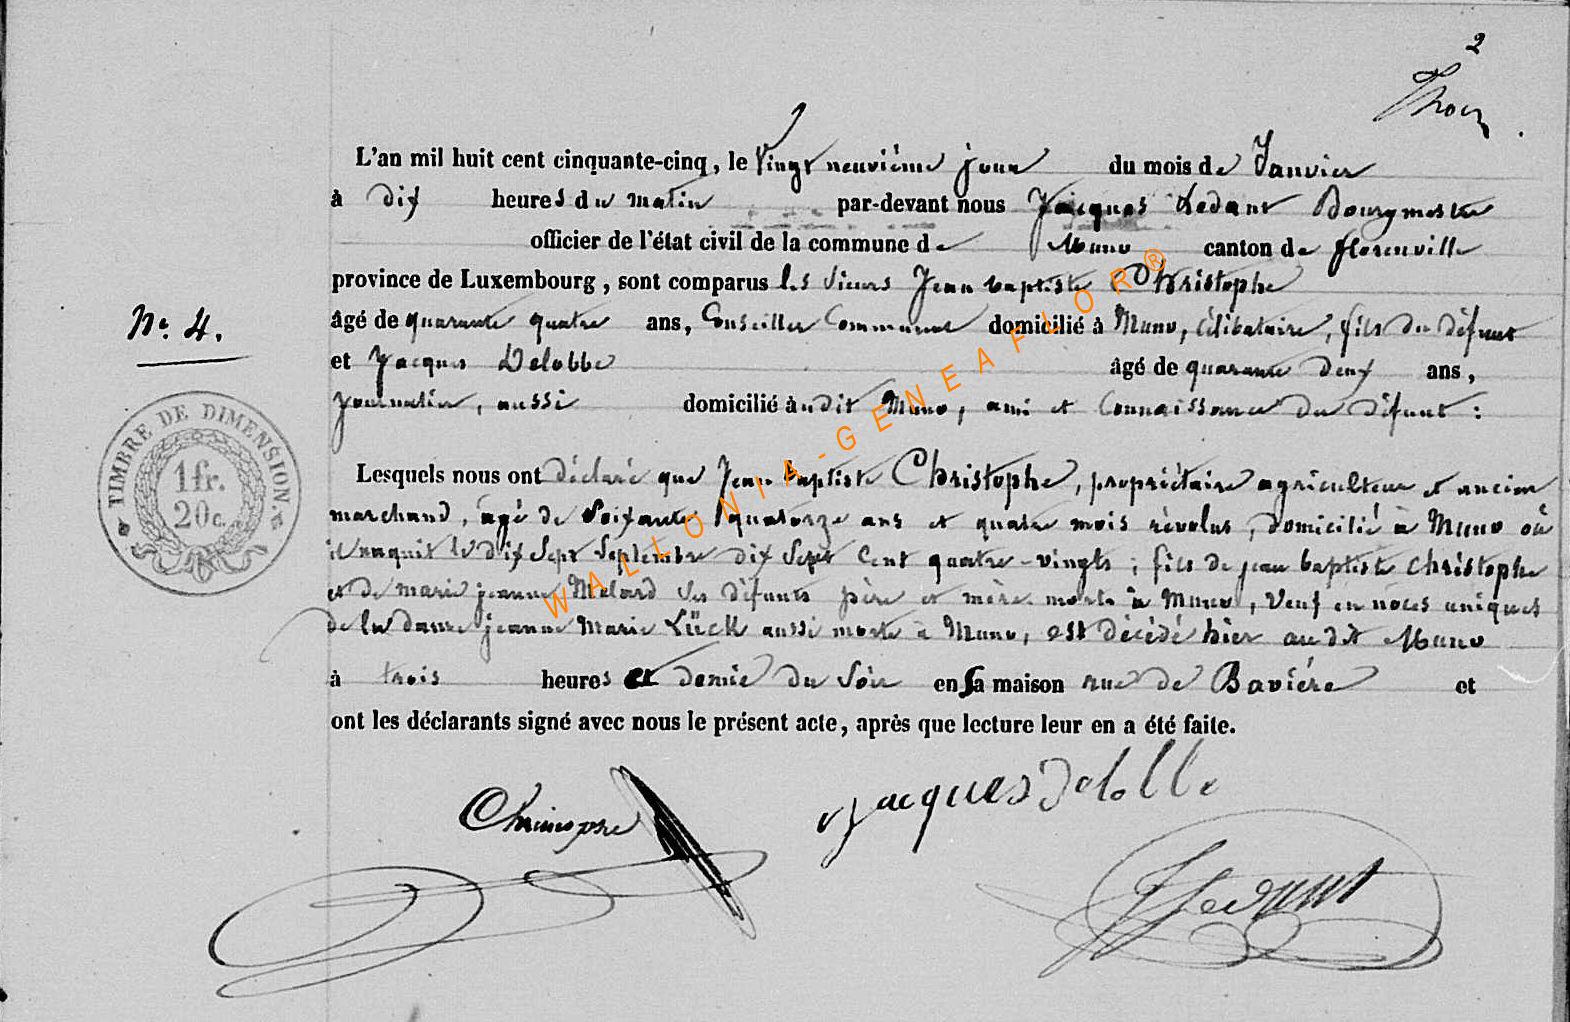 2
L'an mil huit cent cinquante-cinq, le Vingt neuvième jour du mois de Janvier
à dix heures du matin par-devant nous Jacques Ledant Bourgmestre
officier de l'état civil de la commune de Muno canton de florenville
province de Luxembourg, sont comparus les Sieurs Jean baptiste Christophe
N° 4.
âgé de quarante quatre ans, Conseiller Communal domicilié à Muno, célibataire, fils du défunt
et Jacques Delobbe âgé de quarante deux ans,
journalier, aussi domicilié audit Muno, ami et Connaissance du défunt :
TIMBRE DE DIMENSION.
1 fr.
20 c.
Lesquels nous ont déclaré que Jean baptiste Christophe, propriétaire agriculteur et ancien
marchand, âgé de Soixante quatorze ans et quatre mois révolus, domicilié à Muno où
il naquit le dix Sept Septembre dix Sept Cent quatre-vingts ; fils de jean baptiste Christophe
et de marie jeanne Molard Ses défunts père et mère morts à Muno, Veuf en noces uniques
de la dame jeanne Marie Lück aussi morte à Muno, est décédé hier audit Muno
à trois heures et demie du Soir en Sa maison rue de Bavière et
ont les déclarants signé avec nous le présent acte, après que lecture leur en a été faite.
Christophe
Jacques Delobbe
JLedant
WALLONIA-GENEAFLOR®